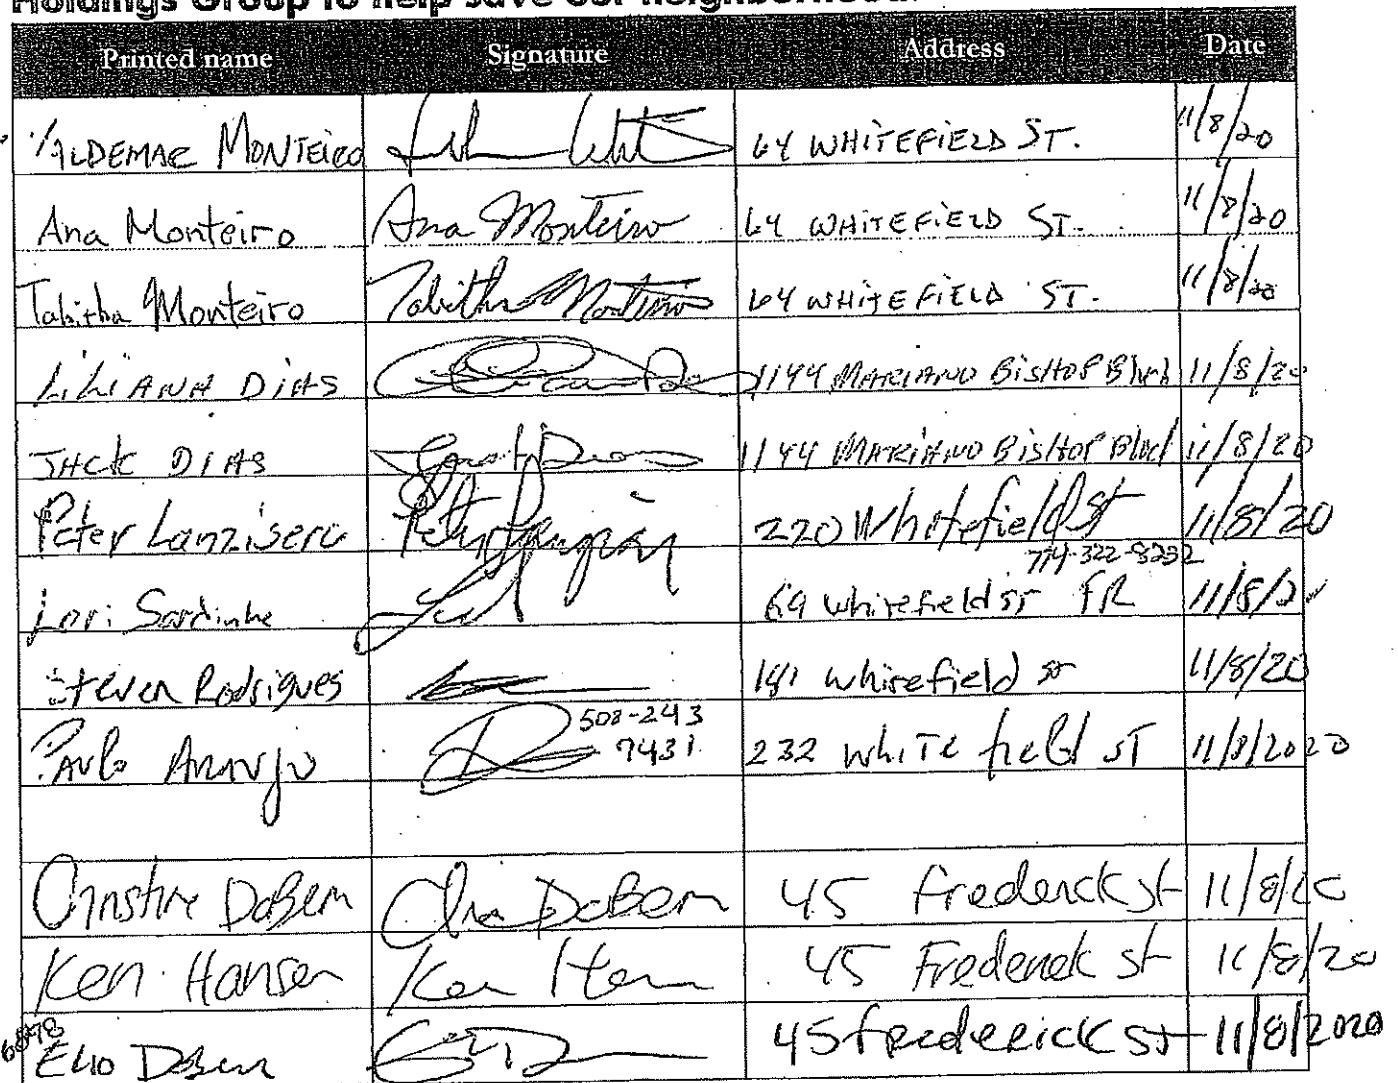 Holdings Group to help save our neighborhood.
Printed name Signature Address Date
VALDEMAR MONTEIRO 64 WHITEFIELD ST. 11/8/20
Ana Monteiro Ana Monteiro 64 WHITEFIELD ST. 11/8/20
Tabitha Monteiro Tabitha Monteiro 64 WHITEFIELD ST. 11/8/20
LiLiANA DiAS 1144 MARIANO BiSHOP Blvd 11/8/20
JACK DIAS 1144 MARIANO BiSHOP Blvd 11/8/20
Peter Lanzisera 220 Whitefield St 11/8/20
774-322-8232
Lori Sardinha 69 whitefield st FR 11/8/20
Steven Rodrigues 181 whitefield st 11/8/20
508-243
7431
PAulo ArAujo 232 white field ST 11/8/2020
Christine DaBem Chris DaBem 45 Frederick st 11/8/20
Ken Hansen Ken 45 Frederick st 11/8/20
Elio DaBem 45 frederick st 11/8/2020